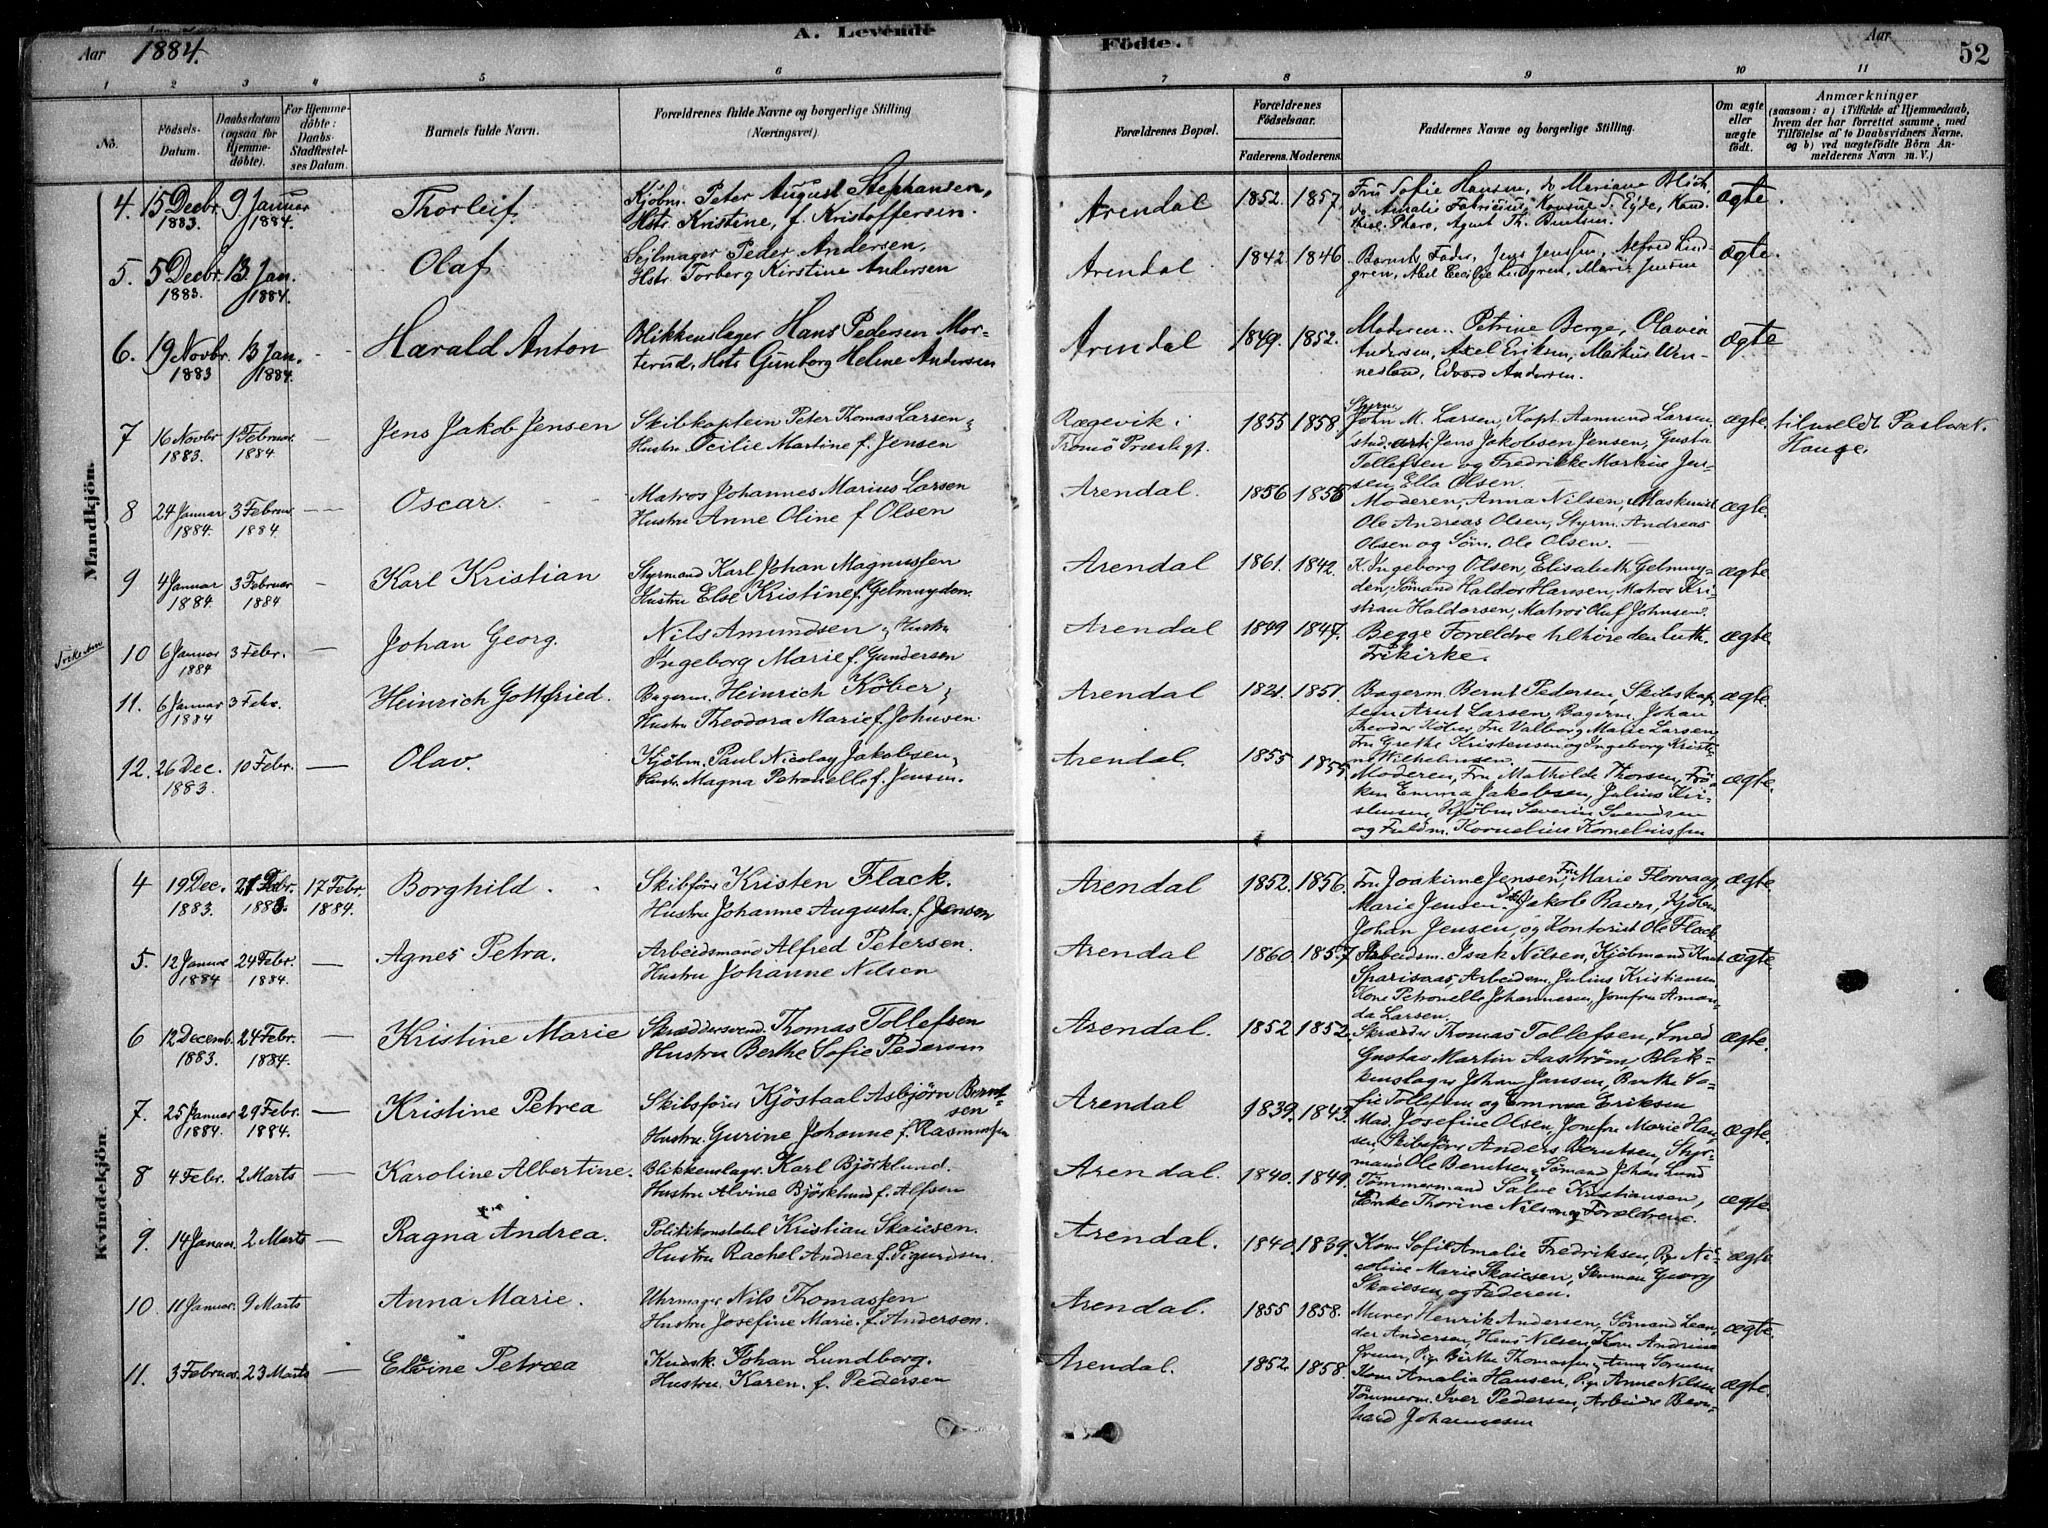 Aar 1884.
A. Levende
Födte.
Aar
52
1 2 3 4 5 6 7 8 9 10 11
No.
Födsels-
Datum.
Daabsdatum
(ogsaa for
Hjemme-
döbte).
For Hjemme-
döbte:
Daabs-
Stadfæstel-
ses Datum.
Barnets fulde Navn.
Forældrenes fulde Navne og borgerlige Stilling
(Næringsvei).
Forældrenes Bopæl.
Forældrenes
Födselsaar.
Faderens. Moderens.
Faddernes Navne og borgerlige Stilling.
Om ægte
eller
uægte
födt.
Anmærkninger
(saasom: a) i Tilfælde af Hjemmedaab,
hvem der har forrettet samme, med
Tilföielse af to Daabsvidners Navne,
og b) ved uægtefödte Börn An-
melderens Navn m. V.)
Mandkjön.
4. 15 Decbr 1883 9 Januar 1884. Thorleif. Kjöbm. Peter August Stephansen,
Hstr. Kristine, f. Kristoffersen. Arendal 1852. 1857. Fru Sofie Hansen, do Mariane Blich,
do Amalie Fabricius, Konsul S. Eyde, Kand.
theol. Agust Th. Bentsen. ægte.
5. 5 Decbr 1883. 13 Jan. 1884. Olaf Seilmager Peder Andersen,
Hstr. Torberg Kirstine Andersen Arendal. 1842 1846 Barnets Fader, Jens Jenssen, Alfred Lind-
gren, Cecilie Lindgren, Marie Jensen ægte.
6. 19 Novbr. 1883 13 Jan. 1884. Harald Anton Blikkenslager Hans Pedersen Mor-
terud, Hstr Gunborg Helene Andersen Arendal 1849. 1852. Moderen, Petrine Berge, Olavia
Andersen, Axel Eriksen, Markus Wen-
nesland, Edvard Andersen. ægte
7 16 Novbr 1883. 1 Februar 1884 — Jens Jakob Jensen Skibskaptein Peter Thomas Larsen,
Hustru Cecilie Martine f. Jensen Rægevik i
Tromö Præstegj. 1855 1858. Styrm.
John M. Larsen, Kapt. Aanund Larsen
stud. Jens Jakobsen Jensen, Gusta
Tellefsen og Fredrikke Martine Jen-
sen, Ella Olsen. ægte. tilmeldt Pastor N.
Hauge.
8 24 Januar 1884. 3 Februar 1884 — Oscar. Matros Johannes Marius Larsen
Hustru Anne Oline f Olsen Arendal. 1856 1856 Moderen, Anna Nilsen, Maskinist
Ole Andreas Olsen, Styrm. Andreas
Olsen og Søm. Ole Olsen. ægte.
9 4 Januar 1884. 3 Februar 1884 — Karl Kristian Styrmand Karl Johan Magnussen
Hustru Else Kristine f. Gelmuyden. Arendal 1861. 1842. K. Ingeborg Olsen, Elisabeth Gelmuy-
den, Sömand Haldor Hansen, Matros Kri-
stian Haldorsen, Matros Oluf Johnsen. ægte
Frikirken
10 6 Januar 1884 3 Febr. — Johan Georg. Nils Amundsen, Hustru
Ingeborg Marie f. Gundersen Arendal 1849 1847. Begge Forældre tilhöre den luth.
Frikirke. ægte.
11. 6 Januar 1884 3 Febr. — Heinrich Gottfried. Bagerm. Heinrich Köber,
Hustru Theodora Marie f. Johnsen. Arendal 1821. 1851. Bagerm. Bernt Pedersen, Skibskap-
tein Arnt Larsen, Bagerm. Johan
Theodor Köber, Fru Valborg Marie Larsen,
Fru Grethe Kristensen og Ingeborg Kristi-
ne Wilhelmsen. ægte.
12. 26 Dec. 1883. 10 Febr. — Olav. Kjöbm. Paul Nicolay Jakobsen,
Hustr. Magna Petronelle f. Jensen. Arendal. 1855 1855. Moderen, Fru Mathilde Thorsen, Frö-
ken Emma Jakobsen, Julius Kri-
stensen, Kjöbm Severin Svendsen
og Fuldm. Kornelius Korneliussen ægte.
Kvindekjön.
4 19 Dec. 1883 1883. 17 Febr. 1884. Borghild. Skibsförer Kristen Flack.
Hustru Johanne Augusta f. Jensen Arendal 1852. 1856. Fru Joakime Jensen, Fru Marie Florvaag,
Marie Jensen, Jakob Ravn, Kjöbm
Johan Jensen, og Kontorist Ole Flack. ægte.
5. 12 Januar 1884 24 Febr. 1884. — Agnes Petra. Arbeidsmand Alfred Petersen.
Hustru Johanne Nilsen Arendal 1860. 1857 Arbeidsm. Isak Nilsen, Kjöbmand Knut
Sparisaas, Arbeidsm Julius Kristiansen
Kone Petronelle Johannesen, Jomfru Aman-
da Larsen. ægte
6 12 Decemb. 1883. 24 Febr. 1884. — Kristine Marie Skræddersvend. Thomas Tollefsen
Hustru Berthe Sofie Pedersen Arendal. 1852 1852. Skrædder Thomas Tollefsen, Smed
Gustav Martin Aaström, Blik-
kenslager Johan Jansen, Berthe So-
fie Tollefsen og Emma Eriksen ægte.
7. 25 Januar 1884. 29 Febr. 1884. — Kristine Petrea Skibsförer Kjöstaal Asbjörn Bernt-
sen
Hustru Gurine Johanne f. Rasmussen Arendal 1839. 1843. Mad. Josefine Olsen, Jomfru Marie Han-
sen, Skibsförer Anders Berntsen, Styr-
mand Ole Berntsen, Sömand Johan Lund ægte.
8 4 Febr. 2 Marts — Karoline Albertine. Blikkenslager Karl Björklund.
Hustru Alvine Björklund f. Alfsen Arendal. 1840. 1849. Tömmermand Salve Kristiansen,
Enke Thorine Nilsen og Forældrene. ægte
9. 14 Januar. 2 Marts — Ragna Andrea. Politikonstabel Kristian Skaiesen.
Hustru Rachel Andrea f. Sigurdsen. Arendal. 1840. 1839. Kone Sofie Amalie Fredriksen, Pge Ni-
coline Marie Skaiesen, Georg
Skaiesen, og Faderen. ægte
10 11 Januar. 9 Marts — Anna Marie. Uhrmager Nils Thomassen
Hustru Josefine Marie. f. Andersen. Arendal. 1855 1858. Murer Henrik Andersen, Sömand Lean-
der Andersen, Hans Nilsen, Kone Andrine
Pige Berthe Thomassen, Anna ægte.
11. 3 Februar. 23 Marts — Elevine Petræa Kudsk. Johan Lundberg.
Hustru. Karen. f. Pedersen Arendal. 1852. 1858. Kone Amalia Hansen, Pige Anne Nilsen
Tömmerm. Iver Pedersen, Arbeider Bern-
hard Johannesen ægte.